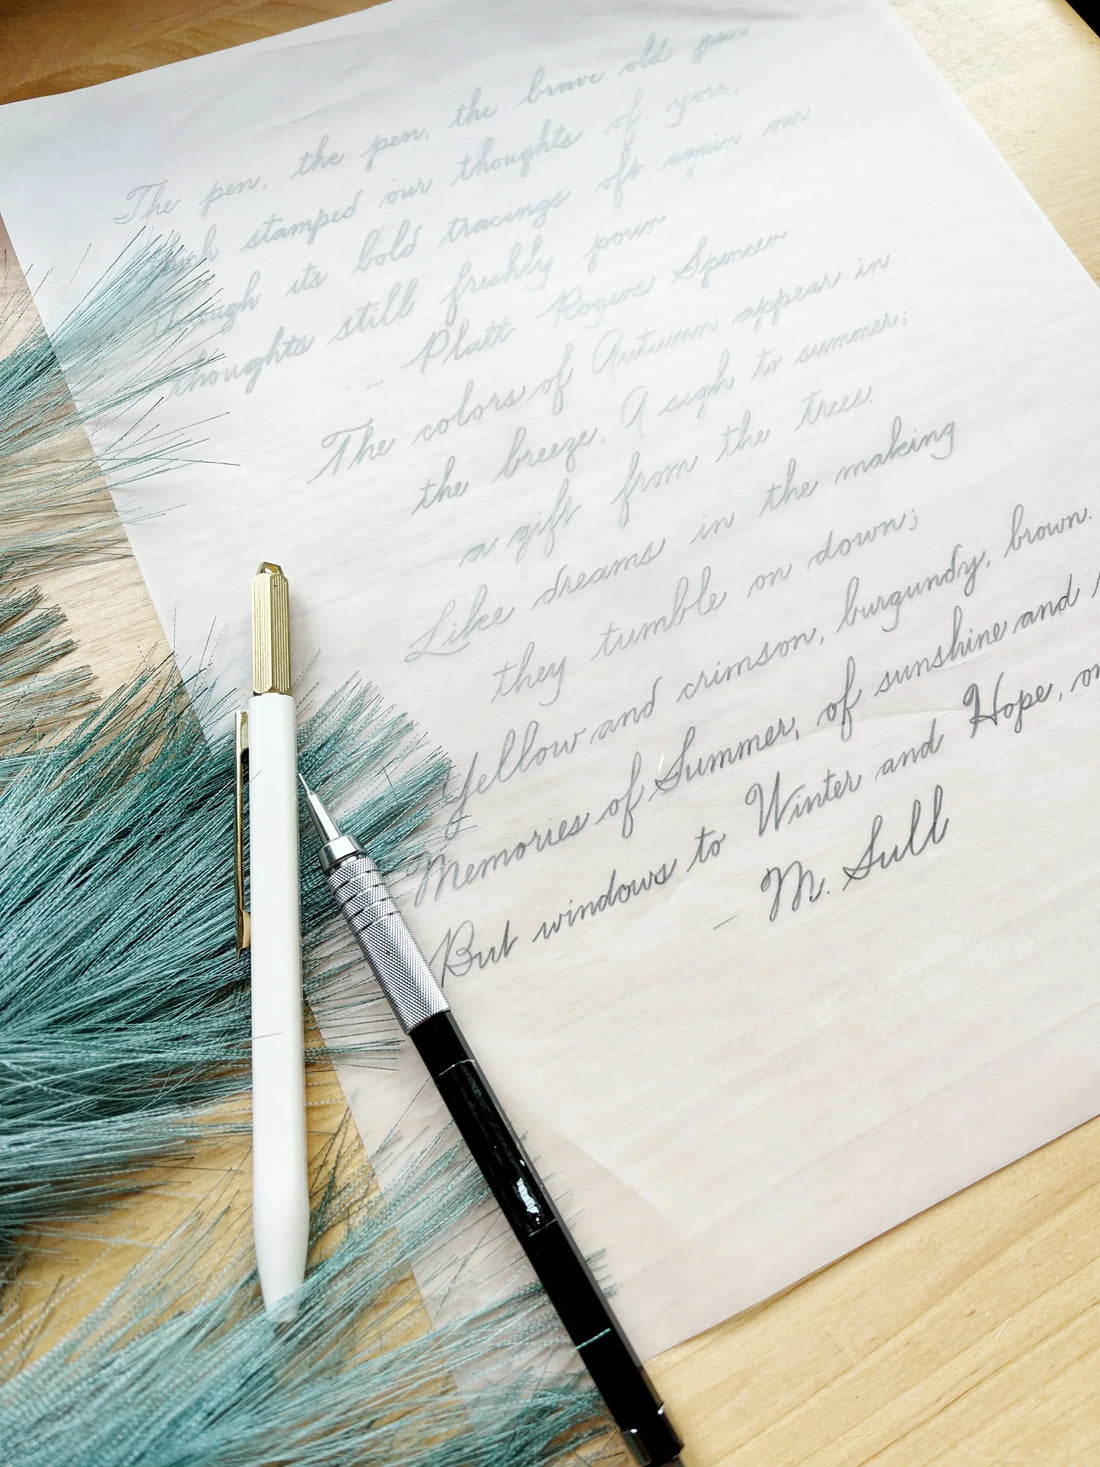 The pen, the pen, the brave old pen
stamped our thoughts of yore,
through its bold tracings oft again our
thoughts still freshly pour.
- Platt Rogers Spencer
The colors of Autumn appear in
the breeze. A sigh to summer;
a gift from the trees.
Like dreams in the making
they tumble on down;
Yellow and crimson, burgundy, brown.
Memories of Summer, of sunshine and
But windows to Winter and Hope,
- M. Sull